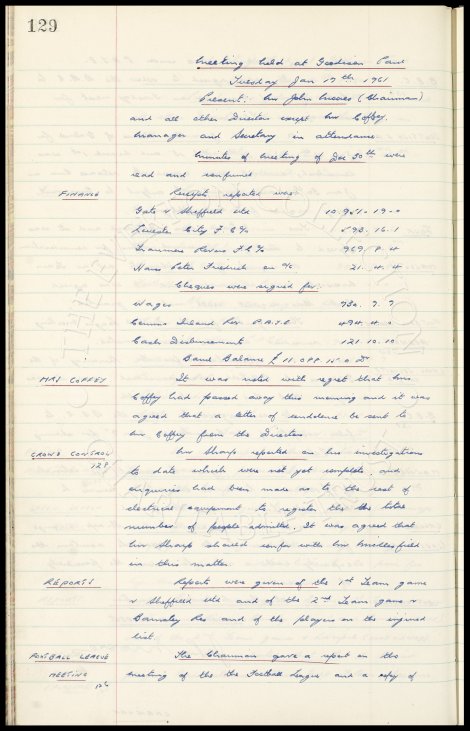 129
Meeting held at Goodison Park
Tuesday Jan 17th 1961
Present: Mr John Moores (Chairman)
and all other Directors except Mr Coffey.
Manager and Secretary in attendance.
Minutes of meeting of Dec 30th were
read and confirmed
FINANCE Receipts reported was
Gate v Sheffield Utd 10.951-19-0
Leicester City F C %
Tranmere Rovers F C % 969. 8. 4
Hans Peter Friedrich on a/c. 21. 4. 4
Cheques were signed for:
Wages 730. 7. 7
Comms Inland Rev P.A.Y.E 494. 4. 0
Cash Disbursements 121. 10. 10
Bank Balance £
MRS COFFEY It was noted with regret that Mrs
Coffey had passed away this morning and it was
agreed that a letter of condolence be sent to
Mr Coffey from the Directors
CROWD CONTROL Mr Sharp reported on his investigations
128 to date which were not yet complete, and
enquiries had been made as to the cost of
electrical equipment to register the total
number of people admitted. It was agreed that
Mr Sharp should confer with Mr Micklesfield
in this matter
REPORTS Reports were given of the 1st Team game
v Sheffield Utd and of the 2nd Team game v
Barnsley Res and of the players on the injured
list.
FOOTBALL LEAGUE The Chairman gave a report on the
MEETING meeting of the the Football League and a copy of
126